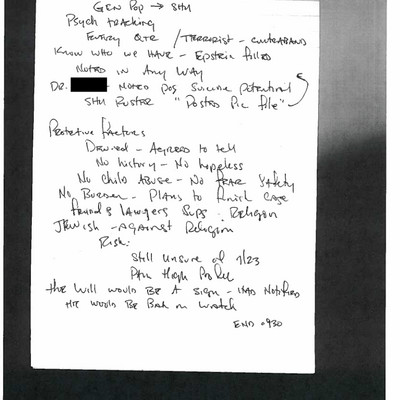 Gen Pop → SHU
Psych tracking
Every QTR / Terrorist - contraband
Know who we have - Epstein filled
Noted in any way
Dr. - Noted pos suicide potential
SHU Roster "Posted Pic file"
Protective factors
Denied - Agreed to tell
No history - No hopeless
No child abuse - No fear safety
No Burden - Plans to finish case
friends lawyers sups. Religion
Jewish - against Religion
Risk:
Still unsure of 7/23
High Profile
the will would be a sign - had notified
He would be back on watch
END 0930